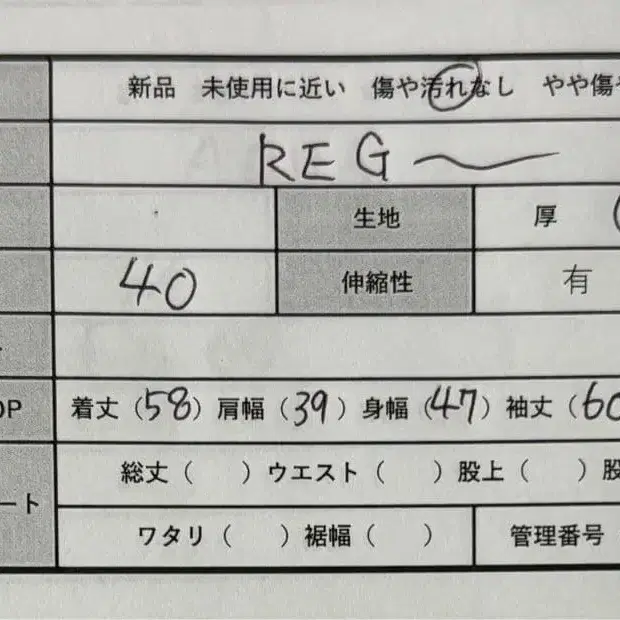 新品 未使用に近い 傷や汚れなし やや傷
REG
生地 厚
40 伸縮性 有
OP 着丈(58)肩幅(39)身幅(47)袖丈(60
総丈( )ウエスト( )股上( )股
ート
ワタリ( )裾幅( ) 管理番号